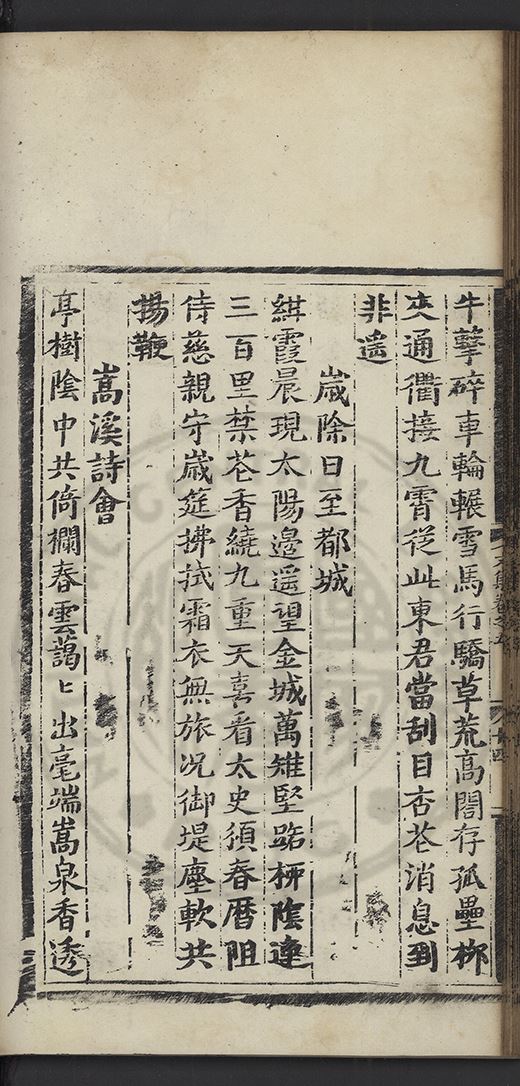 牛擎碎車輪輾雪馬行驕草荒高閣存孤壘栁
夾通衢接九霄從此東君當刮目杏花消息到
非遥
歲除日至都城
緋霞晨現太陽邉遥望金城萬雉堅路柳陰連
三百里葉花香繞九重天喜看太史頒春曆阻
侍慈親守歲筵拂拭霜衣無旅况御堤塵軟共
揚鞭
嵩溪詩會
亭樹陰中共倚欄春雲藹〻出毫端嵩泉香透